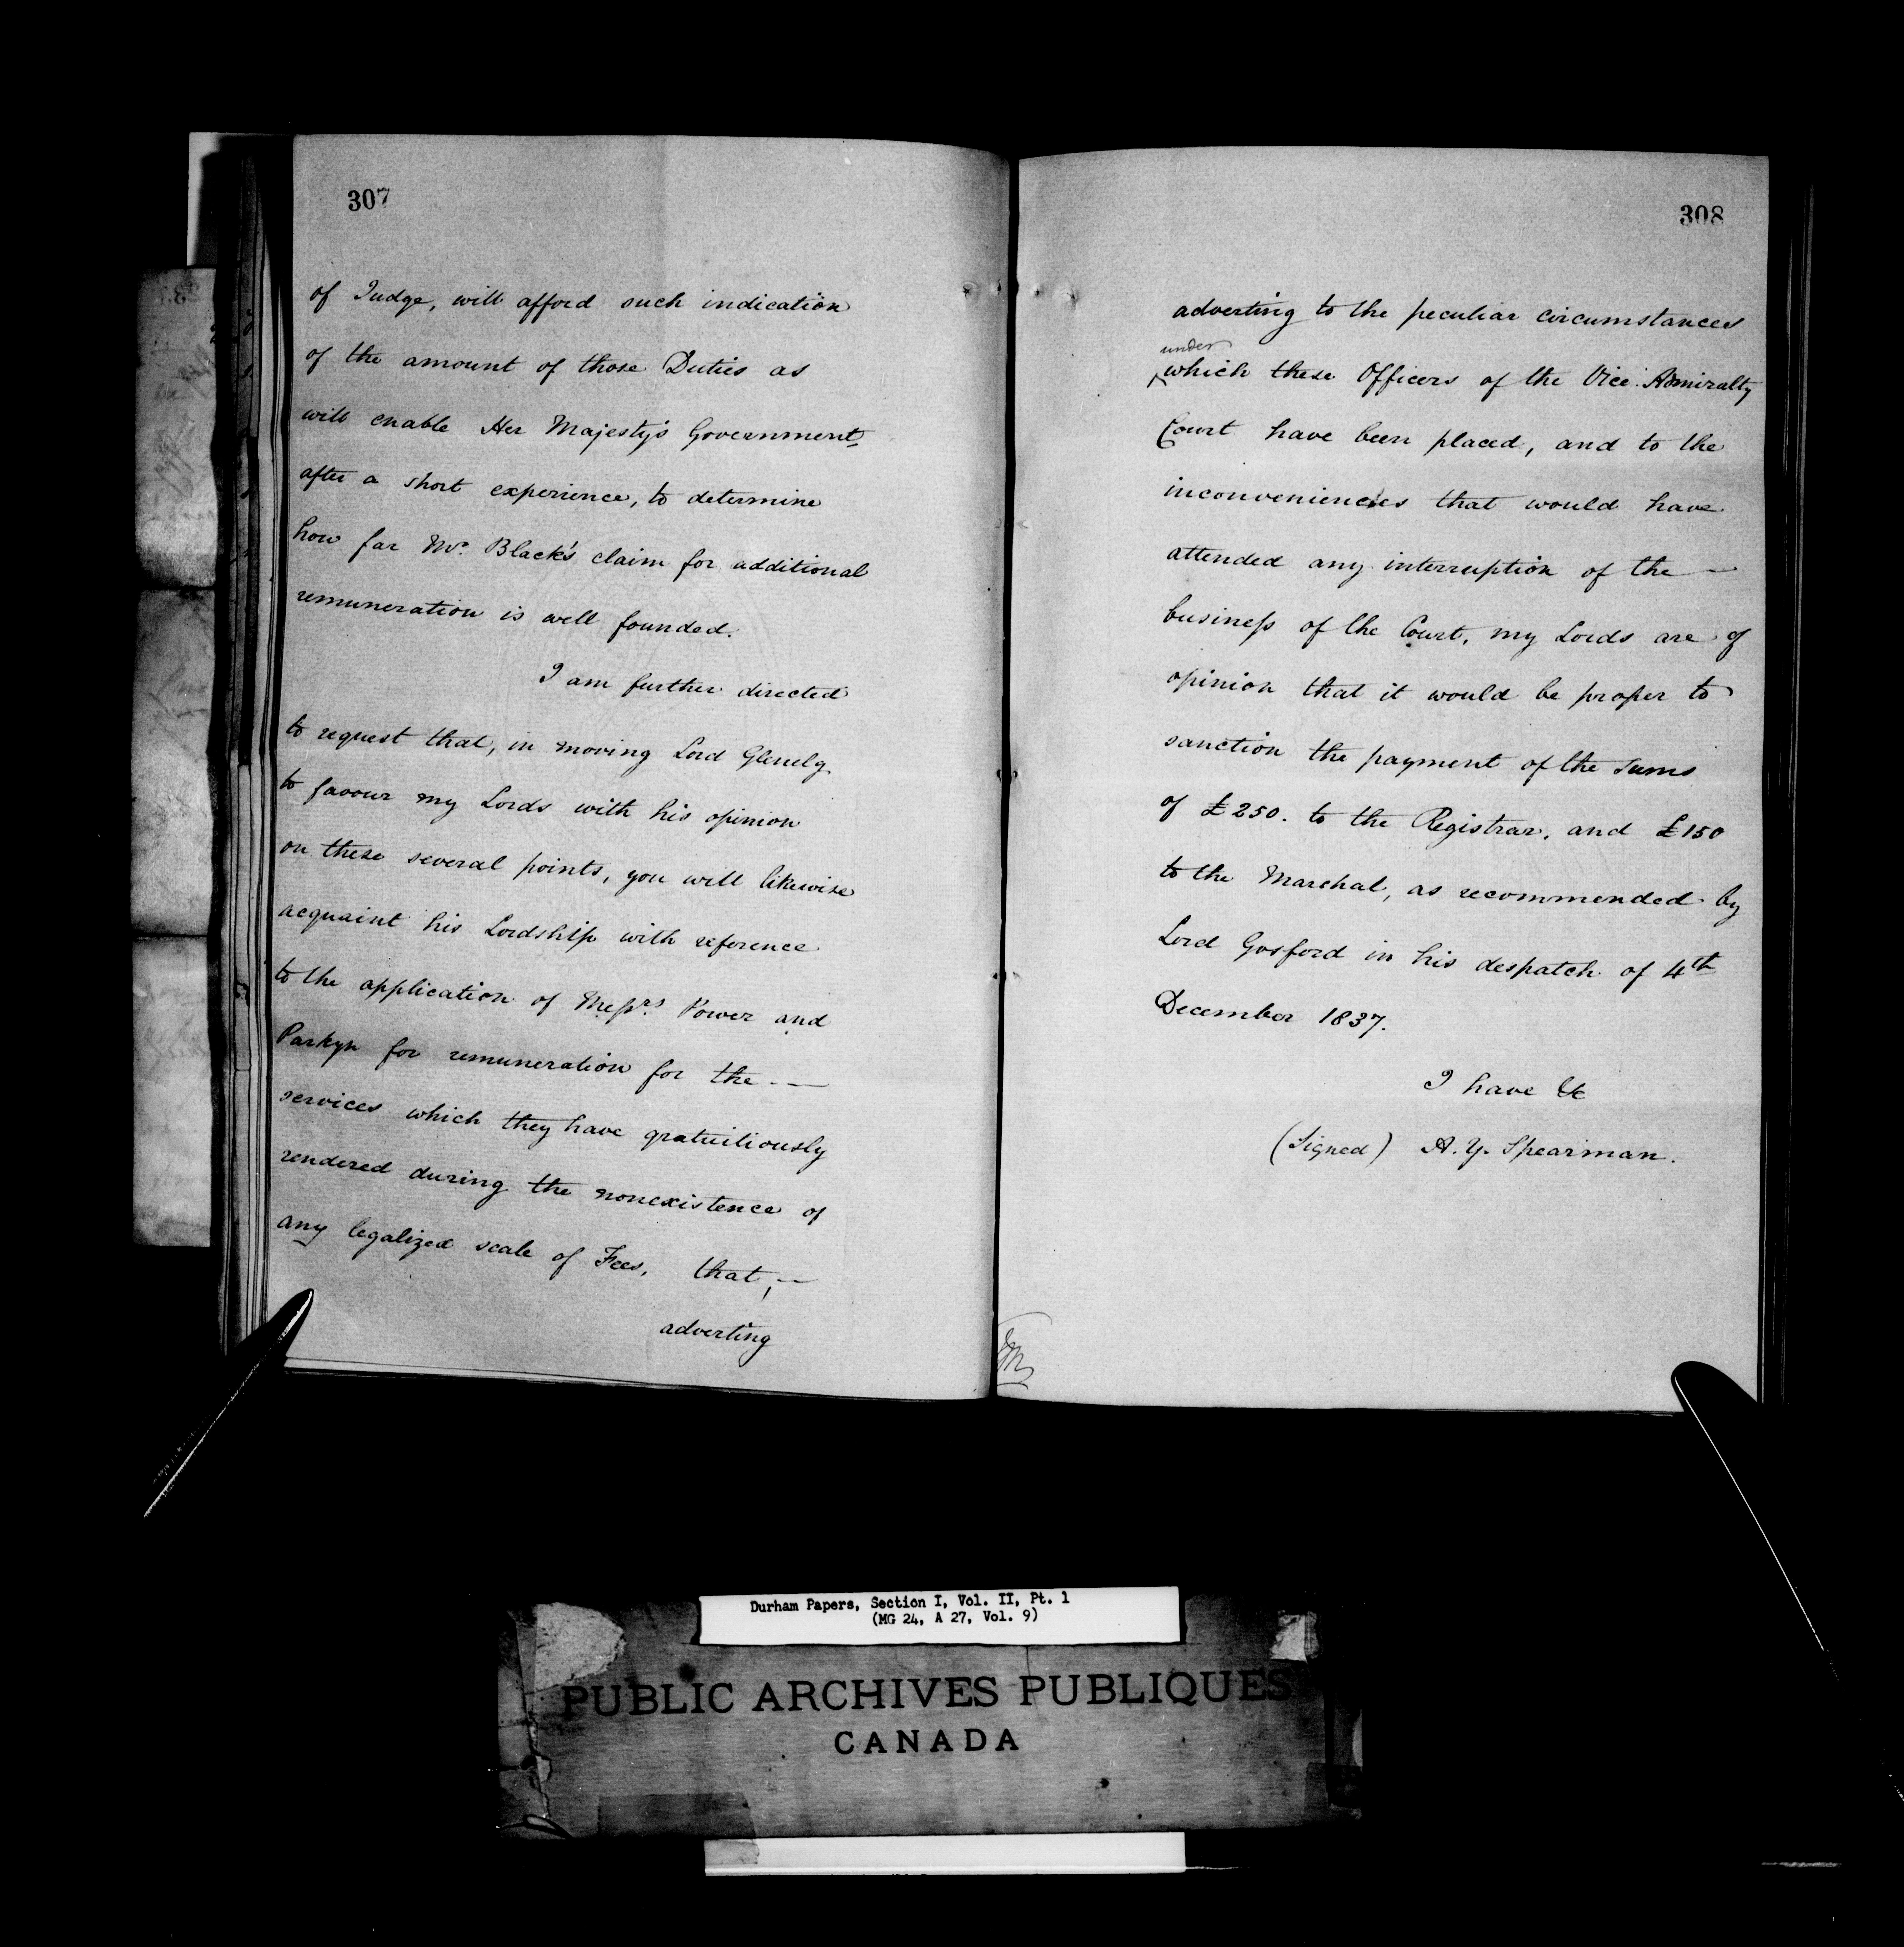 307
of Judge, will afford such indication
of the amount of those Duties as
will enable Her Majesty's Government,
after a short experience, to determine
how far Mr. Black's claim for additional
remuneration is well founded.
I am further directed
to request that, in moving Lord Glenelg
to favour my Lords with his opinion
on these several points, you will likewise
acquaint his Lordship with reference
to the application of Messrs. Power and
Parkyn for remuneration for the —
services which they have gratuitiously
rendered during the nonexistence of
any legalized scale of Fees, that, —
adverting
308
adverting to the peculiar circumstances
under
which these Officers of the Vice Admiralty
Court have been placed, and to the
inconveniencies that would have
attended any interruption of the —
business of the Court, my Lords are of
opinion that it would be proper to
sanction the payment of the Sums
of £250. to the Registrar, and £150
to the Marchal, as recommended by
Lord Gosford in his despatch of 4th
December 1837.
I have &c
(Signed) A. Y. Spearman.
Durham Papers, Section I, Vol. II, Pt. 1
(MG 24, A 27, Vol. 9)
PUBLIC ARCHIVES PUBLIQUES
CANADA